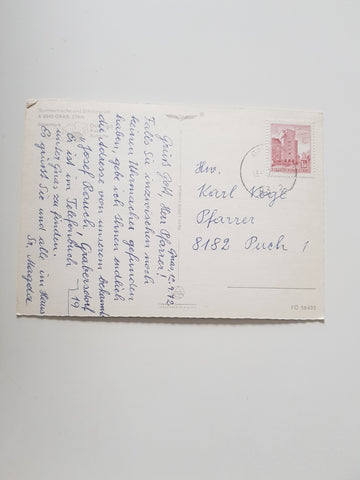 A 8010 GRAZ,
Graz, 12.9.72
Grüß Gott, Herr Pfarrer!
Falls Sie inzwischen noch
keinen Uhrmacher gefunden
haben, gebe ich Ihnen endlich
die Adresse von unserem Bekannten
Josef Rauch, Grabersdorf 19
Er ist im Telefonbuch
unter Gnas zu finden.
Es grüßt Sie und alle im Haus
Sr. Magda
Hw.
Karl Vogl
Pfarrer
8182 Puch
FÜ 56433